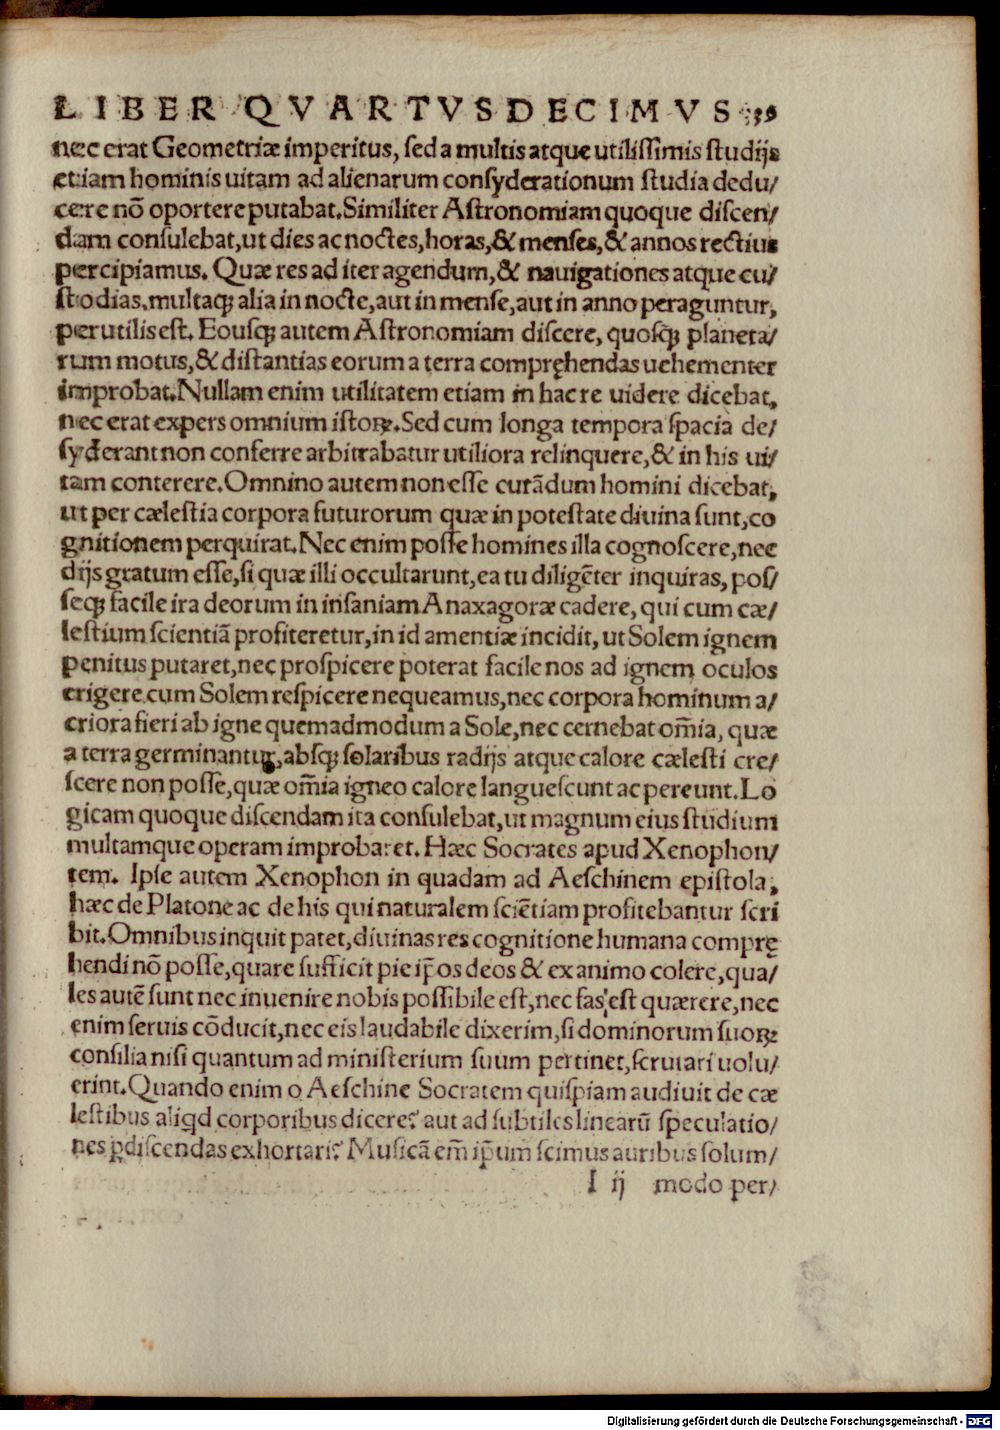 LIBER QVARTVSDECIMVS
nec erat Geometriæ imperitus, sed a multis atque utilissimis studijs
etiam hominis uitam ad alienarum consyderationum studia dedu/
cere nō oportere putabat. Similiter Astronomiam quoque discen/
dam consulebat, ut dies ac noctes, horas, & menses, & annos rectius
percipiamus. Quæ res ad iter agendum, & nauigationes atque cu/
stodias, multaqꝫ alia in nocte, aut in mense, aut in anno peraguntur,
perutilis est. Eousqꝫ autem Astronomiam discere, quosqꝫ planeta/
rum motus, & distantias eorum a terra compręhendas uehementer
improbat. Nullam enim utilitatem etiam in hac re uidere dicebat,
nec erat expers omnium istoꝝ. Sed cum longa tempora spacia de/
syderant non conferre arbitrabatur utiliora relinquere, & in his ui/
tam conterere. Omnino autem non esse curādum homini dicebat,
ut per cælestia corpora futurorum quæ in potestate diuina sunt, co
gnitionem perquirat. Nec enim posse homines illa cognoscere, nec
dijs gratum esse, si quæ illi occultarunt, ea tu diligēter inquiras, pos/
seqꝫ facile ira deorum in insaniam Anaxagoræ cadere, qui cum cæ/
lestium scientiā profiteretur, in id amentiæ incidit, ut Solem ignem
penitus putaret, nec prospicere poterat facile nos ad ignem oculos
erigere cum Solem respicere nequeamus, nec corpora hominum a/
criora fieri ab igne quemadmodum a Sole, nec cernebat om̄ia, quæ
a terra germinantur, absqꝫ solaribus radijs atque calore cælesti cre/
scere non posse, quæ om̄ia igneo calore languescunt ac pereunt. Lo
gicam quoque discendam ita consulebat, ut magnum eius studium
multamque operam improbaret. Hæc Socrates apud Xenophon/
tem. Ipse autem Xenophon in quadam ad Aeschinem epistola,
hæc de Platone ac de his qui naturalem sciētiam profitebantur scri
bit. Omnibus inquit patet, diuinas res cognitione humana comprę
hendi nō posse, quare sufficit pie ip̄os deos & ex animo colere, qua/
les autē sunt nec inuenire nobis possibile est, nec fas est quærere, nec
enim seruis cōducit, nec eis laudabile dixerim, si dominorum suoꝝ
consilia nisi quantum ad ministerium suum pertinet, scrutari uolu/
erint. Quando enim o Aeschine Socratem quispiam audiuit de cæ
lestibus aliqd corporibus dicere? aut ad subtiles linearū speculatio/
nes ꝑdiscendas exhortari? Musicā em̄ ip̄um scimus auribus solum/
I ij modo per/
Digitalisierung gefördert durch die Deutsche Forschungsgemeinschaft - DFG